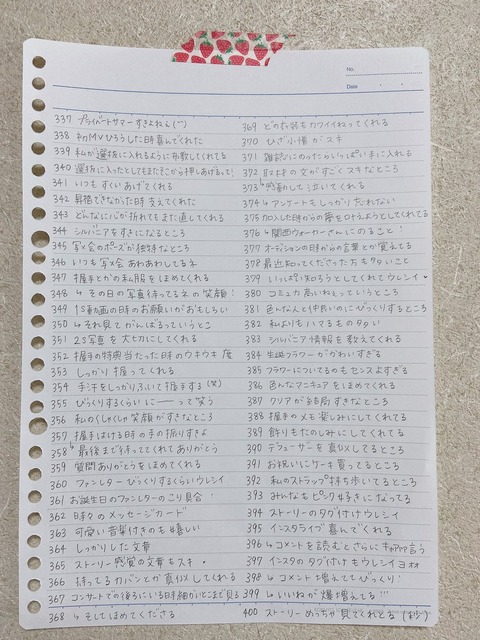 No.
Date
337 プライベートサマーすきよねぇ(^^)
338 初MVひろうした時喜んでくれた
339 私が選抜に入れるように布教してくれてる
340 選抜に入ったとしてもまたそこから押しあげるって!
341 いつもすくいあげてくれる
342 昇格できなかった時支えてくれた
343 どんなに心が折れてもまた直してくれる
344 シルバニアをすきになるところ
345 写メ会のポーズが独特なところ
346 いつも写メ会あわあわしてるネ
347 握手とかの私服をほめてくれる
348 ↳ その日の写真待ってるネの笑顔!
349 1S動画の日時のお願いがおもしろい
350 ↳ それ見てがんばるっていうとこ
351 2S写真を大切にしてくれる
352 握手の特典当たった日時のウキウキ度
353 しっかり握ってくれる
354 手汗をしっかりふいて握手する(笑)
355 びっくりするくらいに——って笑う
356 私のくしゃくしゃ笑顔がすきなところ
357 握手はける時の手の振りすきよ
358 ↳ 最後まで待っててくれてありがとう
359 質問ありがとうをほめてくれる
360 ファンレターびっくりするくらいウレシイ
361 お誕生日のファンレターのこり具合!
362 日時々のメッセージカード
363 可愛い音楽付きのも嬉しい
364 しっかりした文章
365 ストーリー感覚の文章もスキ
366 持ってるカバンとか真似してくれる
367 コンサートでの後ろにいる日時細かいとこまで見る
368 ↳ そしてほめてくださる
369 どのお衣装もカワイイねってくれる
370 ひざ小僧がスキ
371 雑誌にのったらいっぱい手に入れる
372 取材の文がすごくスキなところ
373 ↳ 感動して泣いてくれる
374 ↳ アンケートもしっかり忘れない
375 加入した時からの夢を叶えようとしてくれてる
376 ↳ 関西ウォーカーさんにのること!
377 オーディションの日時からの言葉とか覚えてる
378 最近知ってくださった方も少ないこと
379 いっぱい知ろうとしてくれてウレシイ
380 コミュ力高いねぇっていうところ
381 色んな人と仲良いのにびっくりするところ
382 私よりもハマるもののタタい
383 シルバニア情報を教えてくれる
384 生誕フラワーがかわいすぎる
385 フラワーについてるのもセンスよすぎる
386 色んなマニキュアをほめてくれる
387 クリアが結局すきなところ
388 握手のメモ楽しみにしてくれてる
389 飾りもたのしみにしてくれてる
390 テヴューサーを真似してるところ
391 お祝いにケーキ買ってるところ
392 私のストラップ持ち歩いてるところ
393 みんなもピンク好きになってる
394 ストーリーのタグ付けウレシイ
395 インスタライブ喜んでくれる
396 ↳ コメントを読むとさらにキャアアア言う
397 インスタのタグ付けもウレイヨホホ
398 ↳ コメント増えててびっくり!
399 ↳ いいねが爆増えてる!!!
400 ストーリーめっちゃ見てくれとる (秒)